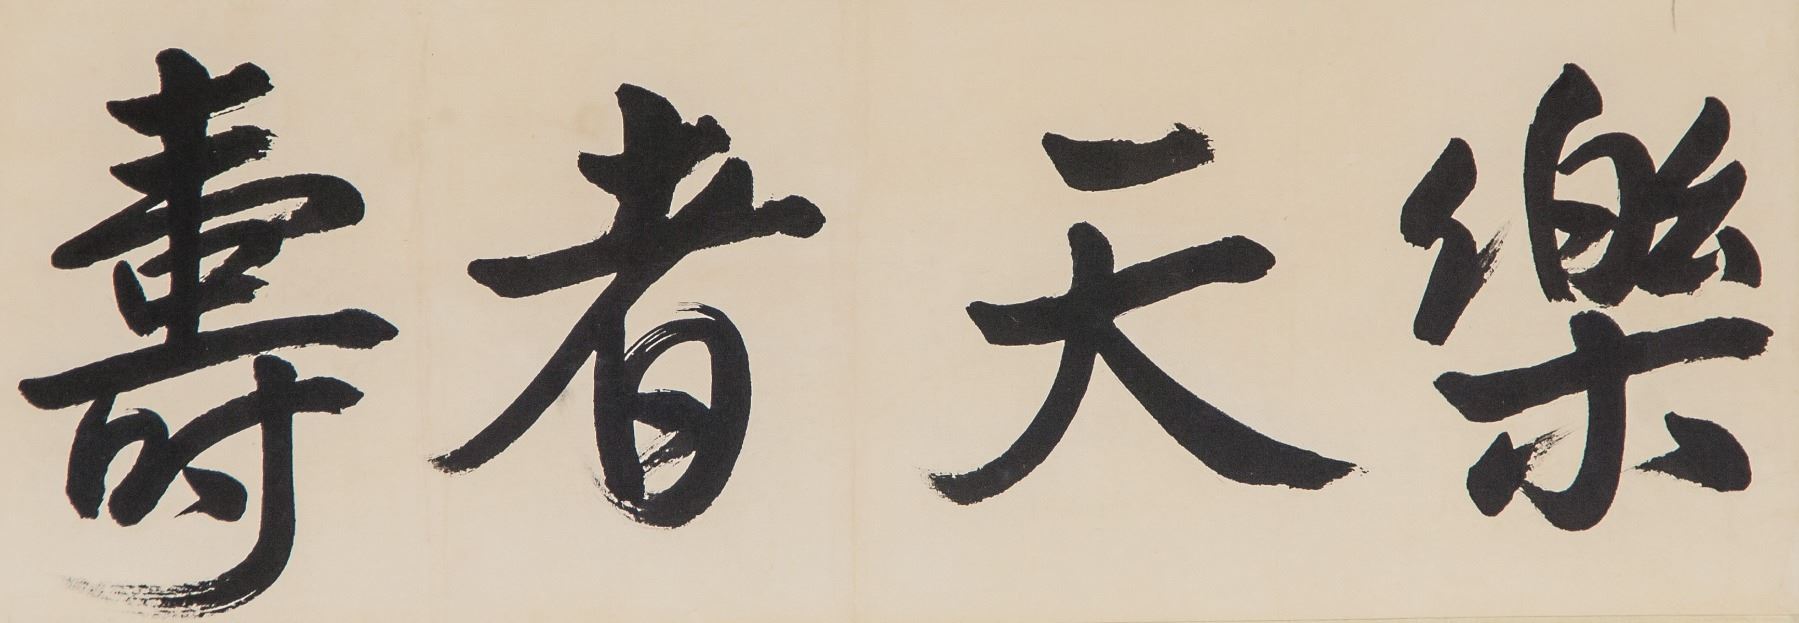 樂天者壽